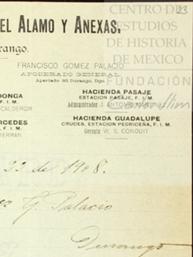 CENTRO DE
ESTUDIOS
DE HISTORIA
DE MEXICO
FUNDACIÓN
23
EL ALAMO Y ANEXAS,
Durango.
FRANCISCO GOMEZ PALACIO
APODERADO GENERAL
Apartado 85 Durango, Dgo.
HACIENDA PASAJE
ESTACION PASAJE, F. I. M.
Administrador
F. I. M.
CALDERON
HACIENDA GUADALUPE
CRUCES, ESTACION PEDRICEÑA, F. I. M.
Gerente W. S. CONDUIT
22 de 1908.
G. Palacio
Durango